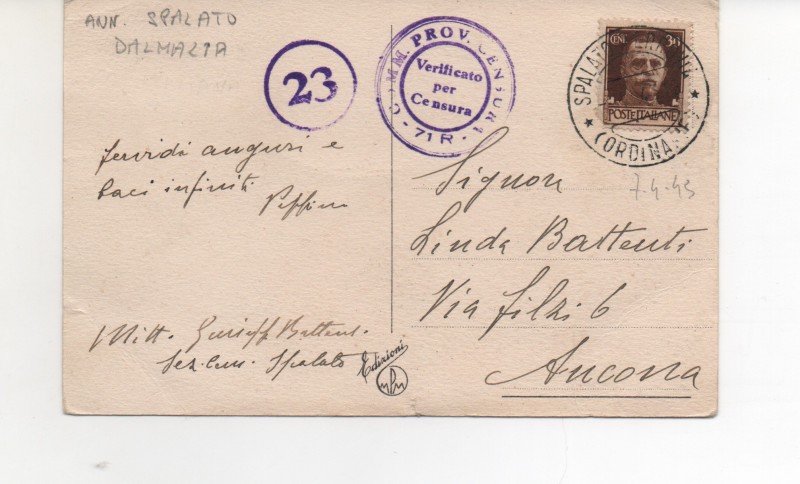 ANN. SPALATO
DALMAZIA
23
COMM. PROV. CENSURA
Verificato
per
Censura
71 R
CENT 30
POSTE ITALIANE
SPALATO
(ORDINARIE)
7.4.43
fervidi auguri e
baci infiniti
Peppino
Signora
Linda Battenti
Via Filzi 6
Ancona
Mitt. Giuseppe Battenti
Sez. Cens. Spalato
Edizioni